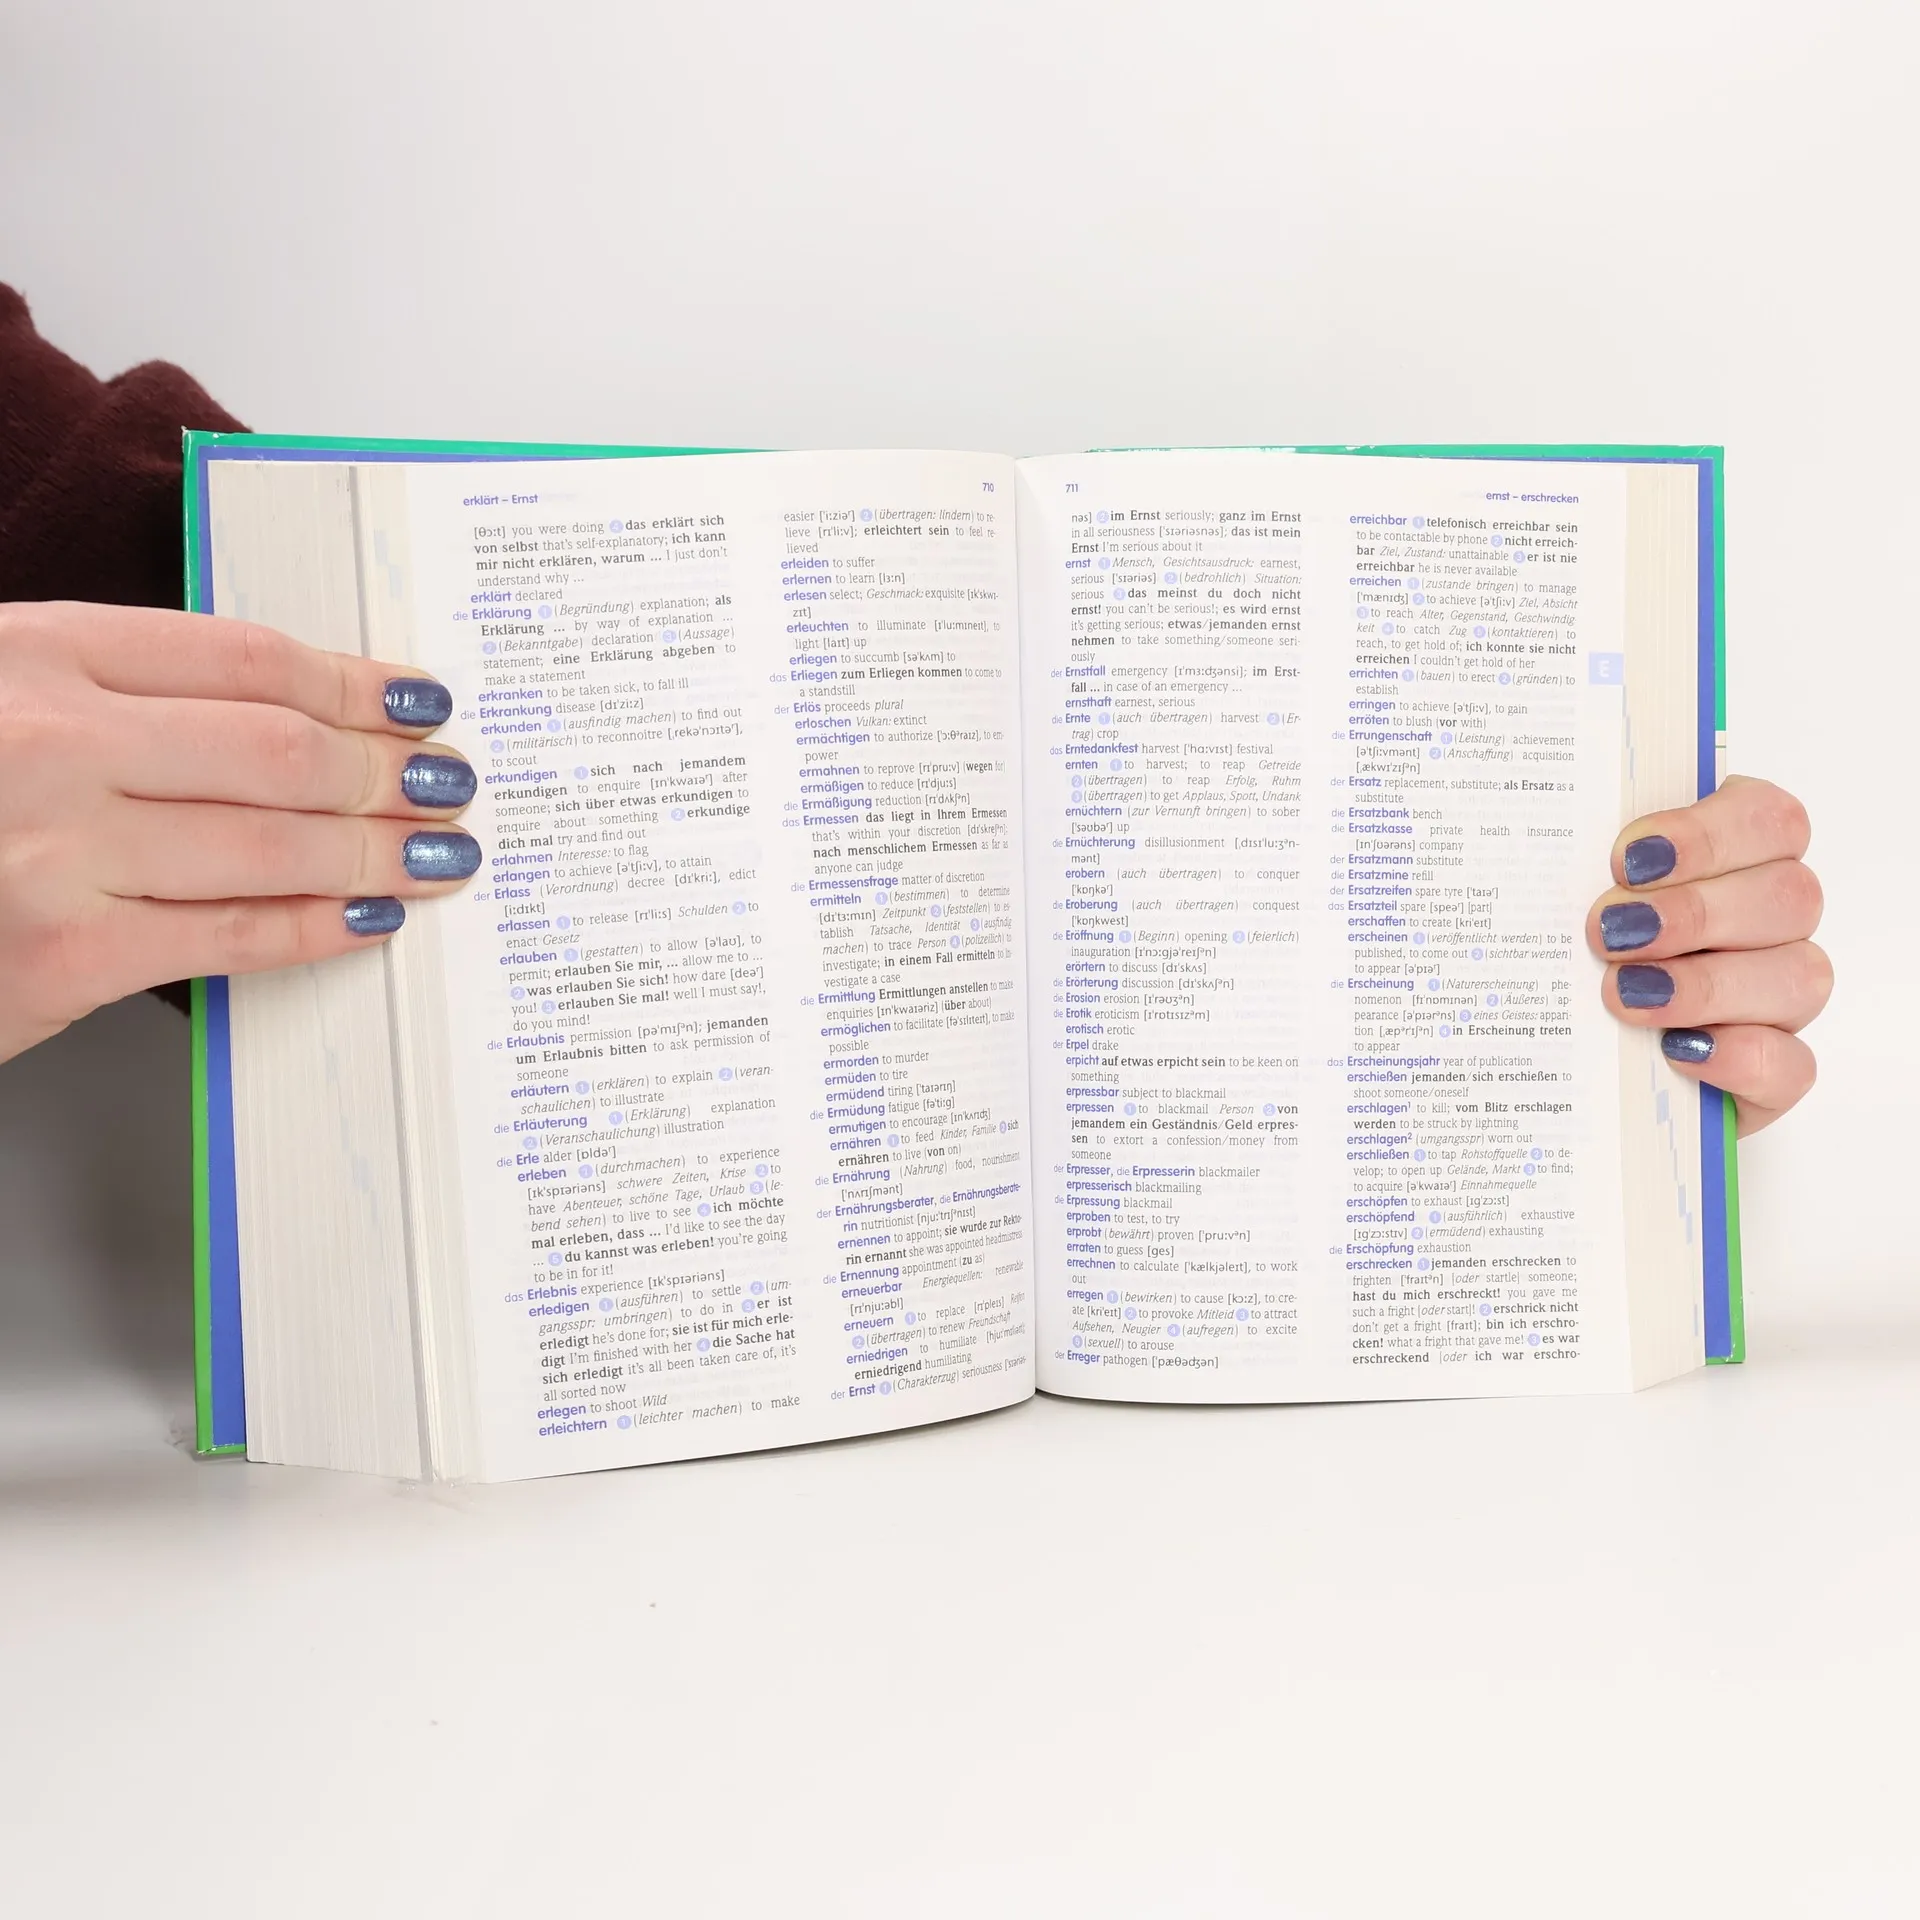 erklärt – Ernst
710
[θɔːt] you were doing 2 das erklärt sich
von selbst that's self-explanatory; ich kann
mir nicht erklären, warum ... I just don't
understand why ...
erklärt declared
die Erklärung 1 (Begründung) explanation; als
Erklärung ... by way of explanation ...
2 (Bekanntgabe) declaration 3 (Aussage)
statement; eine Erklärung abgeben to
make a statement
erkranken to be taken sick, to fall ill
die Erkrankung disease [dɪˈziːz]
erkunden 1 (ausfindig machen) to find out
2 (militärisch) to reconnoitre [ˌrekəˈnɔɪtəʳ],
to scout
erkundigen 1 sich nach jemandem
erkundigen to enquire [ɪnˈkwaɪəʳ] after
someone; sich über etwas erkundigen to
enquire about something 2 erkundige
dich mal try and find out
erlahmen Interesse: to flag
erlangen to achieve [əˈtʃiːv], to attain
der Erlass (Verordnung) decree [dɪˈkriː], edict
[ˈiːdɪkt]
erlassen 1 to release [rɪˈliːs] Schulden 2 to
enact Gesetz
erlauben 1 (gestatten) to allow [əˈlaʊ], to
permit; erlauben Sie mir, ... allow me to ...
2 was erlauben Sie sich! how dare [deəʳ]
you! 3 erlauben Sie mal! well I must say!,
do you mind!
die Erlaubnis permission [pəˈmɪʃᵊn]; jemanden
um Erlaubnis bitten to ask permission of
someone
erläutern 1 (erklären) to explain 2 (veran-
schaulichen) to illustrate
die Erläuterung 1 (Erklärung) explanation
2 (Veranschaulichung) illustration
die Erle alder [ɒldəʳ]
erleben 1 (durchmachen) to experience
[ɪkˈspɪəriəns] schwere Zeiten, Krise 2 to
have Abenteuer, schöne Tage, Urlaub 3 (le-
bend sehen) to live to see 4 ich möchte
mal erleben, dass ... I'd like to see the day
... 5 du kannst was erleben! you're going
to be in for it!
das Erlebnis experience [ɪkˈspɪəriəns]
erledigen 1 (ausführen) to settle 2 (um-
gangsspr: umbringen) to do in 3 er ist
erledigt he's done for; sie ist für mich erle-
digt I'm finished with her 4 die Sache hat
sich erledigt it's all been taken care of, it's
all sorted now
erlegen to shoot Wild
erleichtern 1 (leichter machen) to make
easier [ˈiːziəʳ] 2 (übertragen: lindern) to re-
lieve [rɪˈliːv]; erleichtert sein to feel re-
lieved
erleiden to suffer
erlernen to learn [lɜːn]
erlesen select; Geschmack: exquisite [ɪkˈskwɪ-
zɪt]
erleuchten to illuminate [ɪˈluːmɪneɪt], to
light [laɪt] up
erliegen to succumb [səˈkʌm] to
das Erliegen zum Erliegen kommen to come to
a standstill
der Erlös proceeds plural
erloschen Vulkan: extinct
ermächtigen to authorize [ˈɔːθᵊraɪz], to em-
power
ermahnen to reprove [rɪˈpruːv] (wegen for)
ermäßigen to reduce [rɪˈdjuːs]
die Ermäßigung reduction [rɪˈdʌkʃᵊn]
das Ermessen das liegt in Ihrem Ermessen
that's within your discretion [dɪˈskreʃᵊn];
nach menschlichem Ermessen as far as
anyone can judge
die Ermessensfrage matter of discretion
ermitteln 1 (bestimmen) to determine
[dɪˈtɜːmɪn] Zeitpunkt 2 (feststellen) to es-
tablish Tatsache, Identität 3 (ausfindig
machen) to trace Person 4 (polizeilich) to
investigate; in einem Fall ermitteln to in-
vestigate a case
die Ermittlung Ermittlungen anstellen to make
enquiries [ɪnˈkwaɪəriz] (über about)
ermöglichen to facilitate [fəˈsɪlɪteɪt], to make
possible
ermorden to murder
ermüden to tire
ermüdend tiring [ˈtaɪərɪŋ]
die Ermüdung fatigue [fəˈtiːg]
ermutigen to encourage [ɪnˈkʌrɪdʒ]
ernähren 1 to feed Kinder, Familie 2 sich
ernähren to live (von on)
die Ernährung (Nahrung) food, nourishment
[ˈnʌrɪʃmənt]
der Ernährungsberater, die Ernährungsberate-
rin nutritionist [njuːˈtrɪʃᵊnɪst]
ernennen to appoint; sie wurde zur Rekto-
rin ernannt she was appointed headmistress
die Ernennung appointment (zu as)
erneuerbar Energiequellen: renewable
[rɪˈnjuːəbl]
erneuern 1 to replace [rɪˈpleɪs] Reifen
2 (übertragen) to renew Freundschaft
erniedrigen to humiliate [hjuːˈmɪliət]
erniedrigend humiliating
der Ernst 1 (Charakterzug) seriousness [ˈsɪəriəs-
711
ernst – erschrecken
nəs] 2 im Ernst seriously; ganz im Ernst
in all seriousness [ˈsɪəriəsnəs]; das ist mein
Ernst I'm serious about it
ernst 1 Mensch, Gesichtsausdruck: earnest,
serious [ˈsɪəriəs] 2 (bedrohlich) Situation:
serious 3 das meinst du doch nicht
ernst! you can't be serious!; es wird ernst
it's getting serious; etwas/jemanden ernst
nehmen to take something/someone seri-
ously
der Ernstfall emergency [ɪˈmɜːdʒənsi]; im Ernst-
fall ... in case of an emergency ...
ernsthaft earnest, serious
die Ernte 1 (auch übertragen) harvest 2 (Er-
trag) crop
das Erntedankfest harvest [ˈhɑːvɪst] festival
ernten 1 to harvest; to reap Getreide
2 (übertragen) to reap Erfolg, Ruhm
3 (übertragen) to get Applaus, Spott, Undank
ernüchtern (zur Vernunft bringen) to sober
[ˈsəʊbəʳ] up
die Ernüchterung disillusionment [ˌdɪsɪˈluːʒᵊn-
mənt]
erobern (auch übertragen) to conquer
[ˈkɒŋkəʳ]
die Eroberung (auch übertragen) conquest
[ˈkɒŋkwest]
die Eröffnung 1 (Beginn) opening 2 (feierlich)
inauguration [ɪˈnɔːgjəˈreɪʃᵊn]
erörtern to discuss [dɪˈskʌs]
die Erörterung discussion [dɪˈskʌʃᵊn]
die Erosion erosion [ɪˈrəʊʒᵊn]
die Erotik eroticism [ɪˈrɒtɪsɪzᵊm]
erotisch erotic
der Erpel drake
erpicht auf etwas erpicht sein to be keen on
something
erpressbar subject to blackmail
erpressen 1 to blackmail Person 2 von
jemandem ein Geständnis/Geld erpres-
sen to extort a confession/money from
someone
der Erpresser, die Erpresserin blackmailer
erpresserisch blackmailing
die Erpressung blackmail
erproben to test, to try
erprobt (bewährt) proven [ˈpruːvᵊn]
erraten to guess [ges]
errechnen to calculate [ˈkælkjəleɪt], to work
out
erregen 1 (bewirken) to cause [kɔːz], to cre-
ate [kriˈeɪt] 2 to provoke Mitleid 3 to attract
Aufsehen, Neugier 4 (aufregen) to excite
5 (sexuell) to arouse
der Erreger pathogen [ˈpæθədʒən]
erreichbar 1 telefonisch erreichbar sein
to be contactable by phone 2 nicht erreich-
bar Ziel, Zustand: unattainable 3 er ist nie
erreichbar he is never available
erreichen 1 (zustande bringen) to manage
[ˈmænɪdʒ] 2 to achieve [əˈtʃiːv] Ziel, Absicht
3 to reach Alter, Gegenstand, Geschwindig
keit 4 to catch Zug 5 (kontaktieren) to
reach, to get hold of; ich konnte sie nicht
erreichen I couldn't get hold of her
errichten 1 (bauen) to erect 2 (gründen) to
establish
erringen to achieve [əˈtʃiːv], to gain
erröten to blush (vor with)
die Errungenschaft 1 (Leistung) achievement
[əˈtʃiːvmənt] 2 (Anschaffung) acquisition
[ˌækwɪˈzɪʃᵊn]
der Ersatz replacement, substitute; als Ersatz as a
substitute
die Ersatzbank bench
die Ersatzkasse private health insurance
[ɪnˈʃʊərəns] company
der Ersatzmann substitute
die Ersatzmine refill
der Ersatzreifen spare tyre [ˈtaɪəʳ]
das Ersatzteil spare [speəʳ] [part]
erschaffen to create [kriˈeɪt]
erscheinen 1 (veröffentlicht werden) to be
published, to come out 2 (sichtbar werden)
to appear [əˈpɪəʳ]
die Erscheinung 1 (Naturerscheinung) phe-
nomenon [fɪˈnɒmɪnən] 2 (Äußeres) ap-
pearance [əˈpɪərᵊns] 3 eines Geistes: appari-
tion [ˌæpᵊˈrɪʃᵊn] 4 in Erscheinung treten
to appear
das Erscheinungsjahr year of publication
erschießen jemanden/sich erschießen to
shoot someone/oneself
erschlagen¹ to kill; vom Blitz erschlagen
werden to be struck by lightning
erschlagen² (umgangsspr) worn out
erschließen 1 to tap Rohstoffquelle 2 to de-
velop; to open up Gelände, Markt 3 to find;
to acquire [əˈkwaɪəʳ] Einnahmequelle
erschöpfen to exhaust [ɪgˈzɔːst]
erschöpfend 1 (ausführlich) exhaustive
[ɪgˈzɔːstɪv] 2 (ermüdend) exhausting
die Erschöpfung exhaustion
erschrecken 1 jemanden erschrecken to
frighten [ˈfraɪtᵊn] [oder startle] someone;
hast du mich erschreckt! you gave me
such a fright [oder start]! 2 erschrick nicht
don't get a fright [fraɪt]; bin ich erschro-
cken! what a fright that gave me! 3 es war
erschreckend [oder ich war erschro-
E